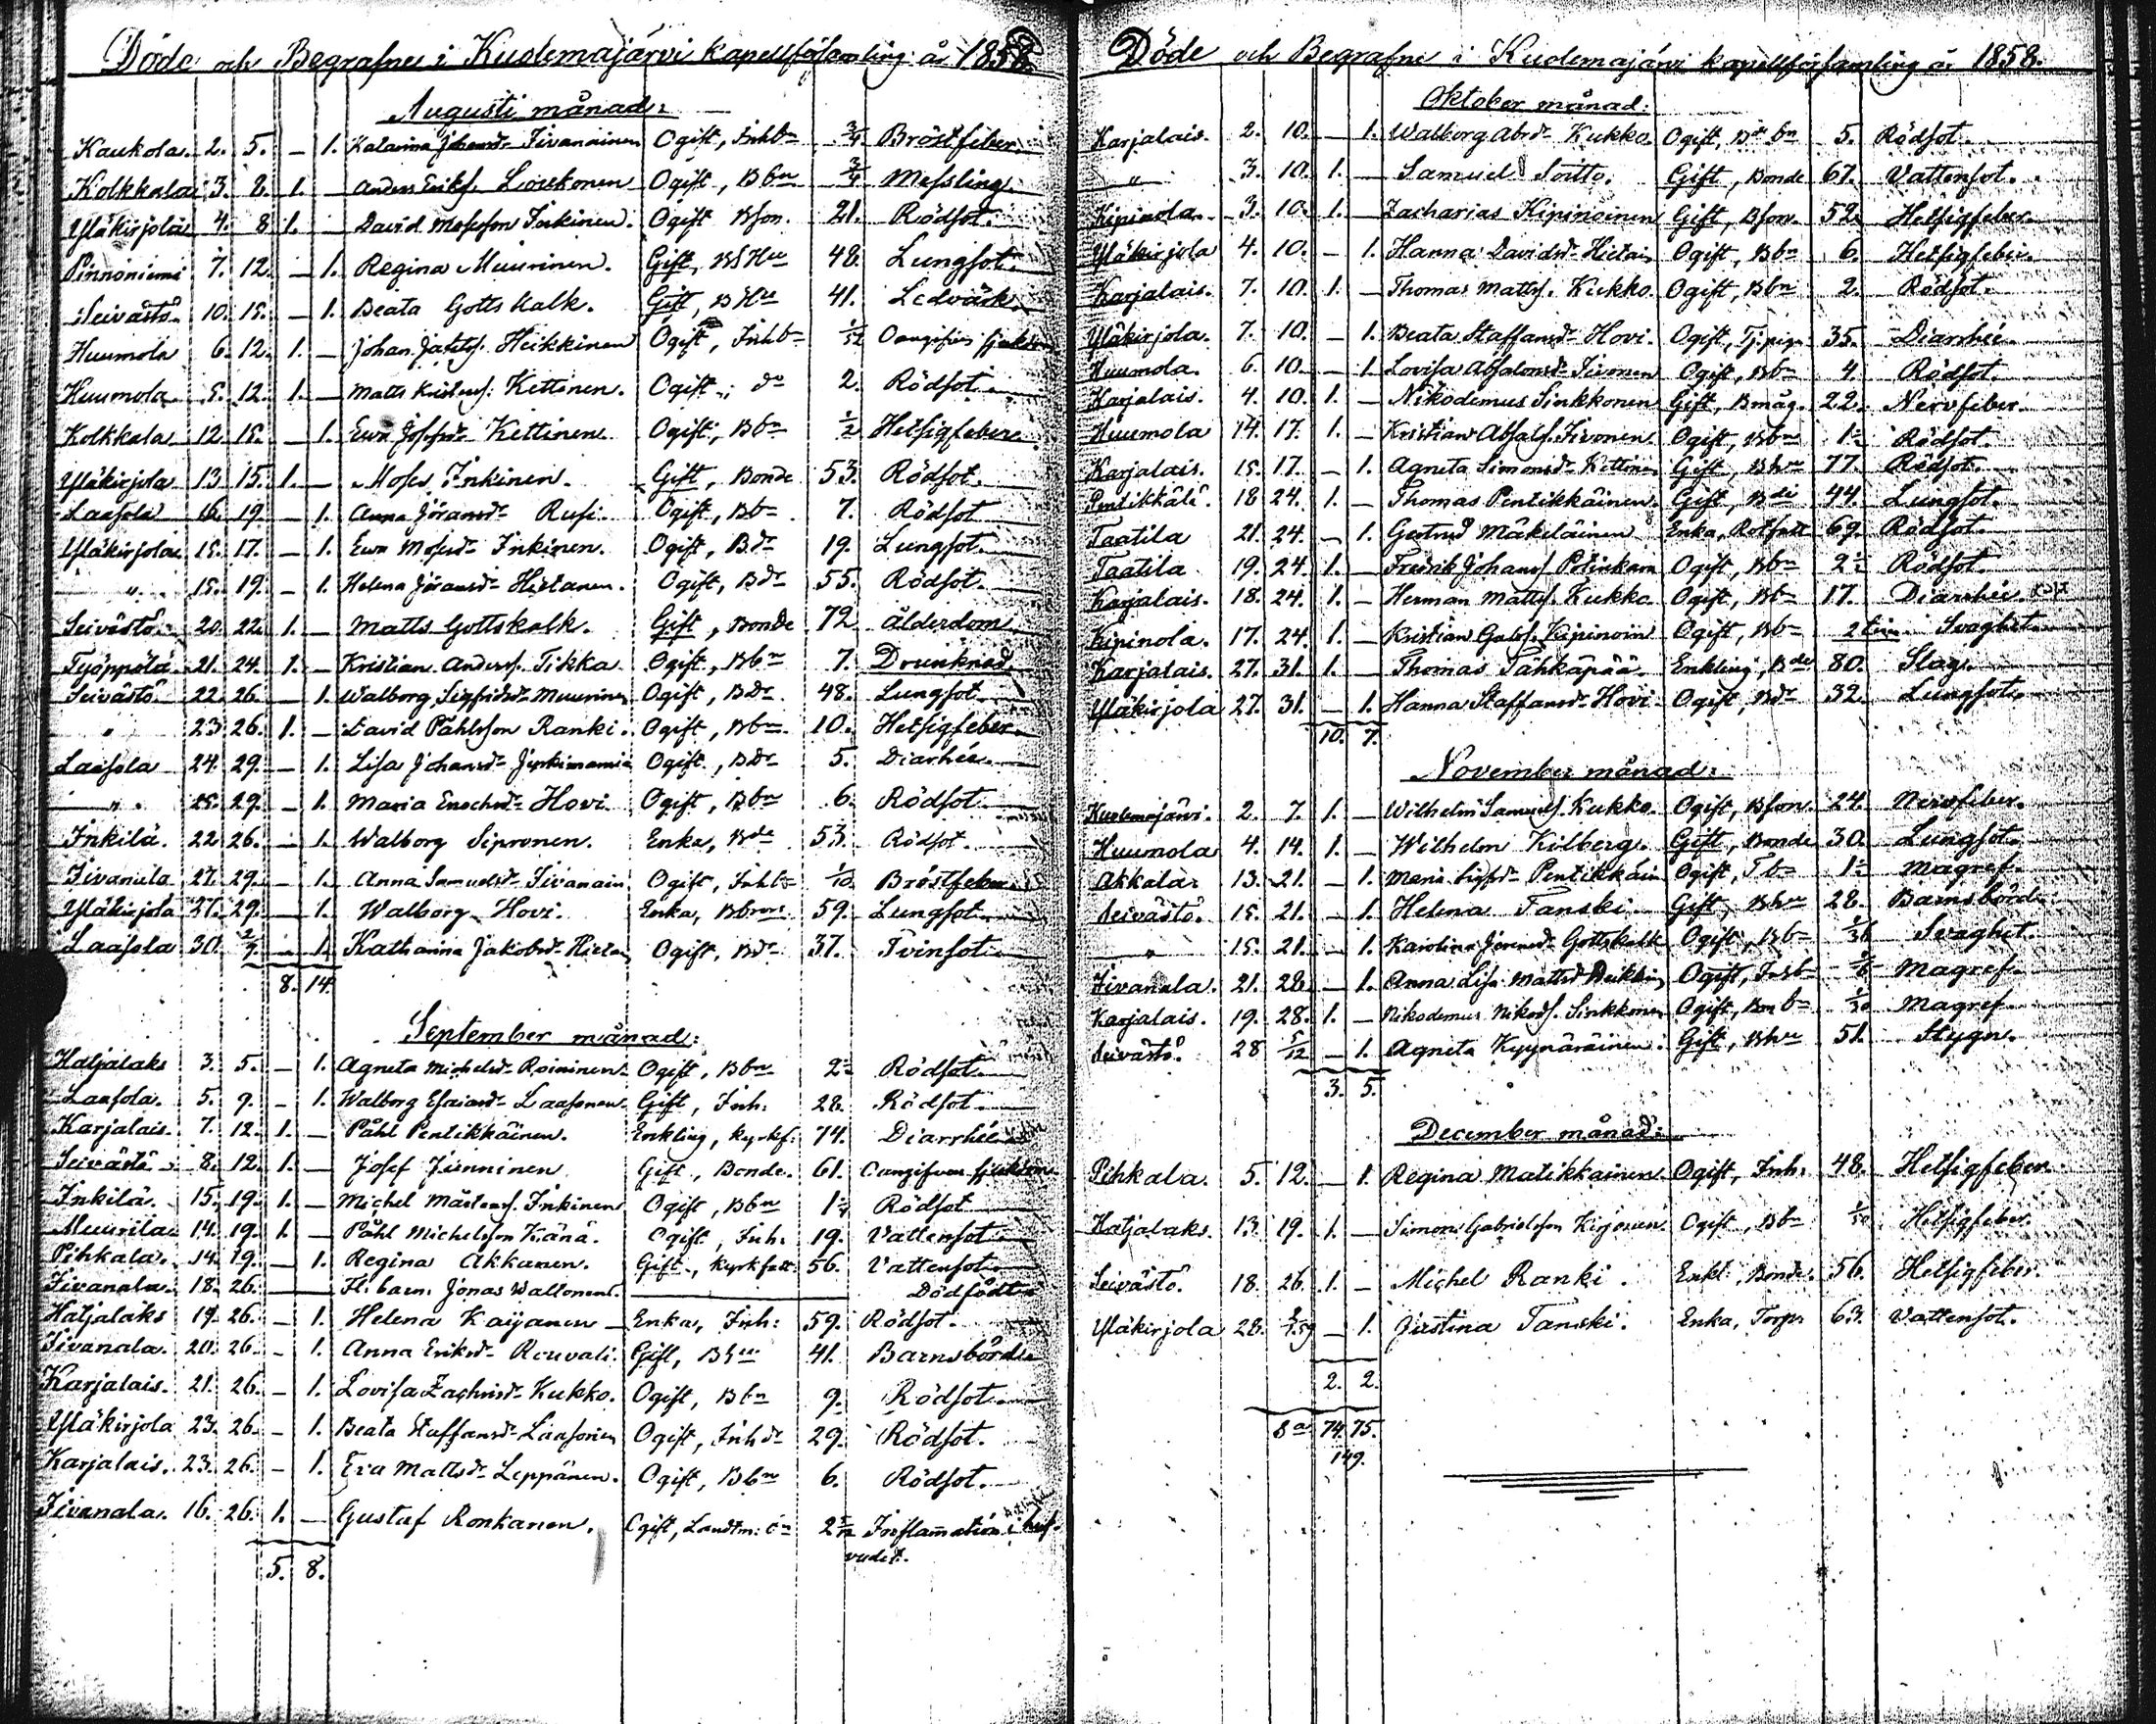 Döde och Begrafne i Kuolemajärvi kapellförsamling år 1858.
Augusti månad:
Kaukola. 2. 5. – 1. Katarina Johansdr Sivanainen Ogift, Inhbn 3/4 Bröstfeber.
Kolkkala 3. 8. 1. – Anders Eriks. Lioukonen Ogift, Bbn 3/4 Messling.
Yläkirjola 4. 8 1. – David Mosesson Inkinen. Ogift Bson. 21. Rödsot.
Pinnoniemi 7. 12. – 1. Regina Muurinen. Gift, BSHu 48. Lungsot.
Seivästö 10. 15. – 1. Beata Gottskalk. Gift, BHu 41. Ledvärk.
Huumola 6. 12. 1. – Johan Jakobs. Heikkinen Ogift, Inhbn 1/52 Oangifven sjukdom
Huumola 5. 12. 1. – Matts Kristers. Kettinen. Ogift, do 2. Rödsot.
Kolkkala 12. 15. – 1. Ewa Josefsdr Kettinen. Ogift, Bbn 1/2 Hetsigfeber
Yläkirjola 13. 15. 1. – Moses Inkinen. Gift, Bonde 53. Rödsot.
Laasola 16. 19. – 1. Anna Jöransdr Rusi Ogift, Bbn 7. Rödsot
Yläkirjola 15. 17. – 1. Ewa Mosesdr Inkinen. Ogift, Bdr 19. Lungsot.
" 15. 19. – 1. Helena Jöransdr Hietanen. Ogift, Bdr 55. Rödsot.
Seivästö 20. 22. 1. – Matts Gottskalk. Gift, Bonde 72 ålderdom
Työppölä 21. 24. 1. – Kristian Anders. Tikka Ogift, Bbn 7. Drunknad
Seivästö 22. 26. – 1. Walborg Sigfridsdr Muurinen Ogift, Bdr 48. Lungsot
" 23. 26. 1. – David Påhlsson Ranki. Ogift, Bbn 10. Hetsigfeber.
Laasola 24. 29. – 1. Lisa Johansdr Ogift, Bdr 5. Diarhée.
" 25. 29. – 1. Maria Enochsdr Hovi. Ogift, Bbn 6. Rödsot
Inkilä. 22. 26. – 1. Walborg Sipronen. Enka, Bde 53. Rödsot.
Sivanala 27. 29. – 1. Anna Samuelsdr Sivanain Ogift, Inhbn 1/10 Bröstfeber
Yläkirjola 27. 29. – 1. Walborg Hovi. Enka, 59. Lungsot
Laasola 30. 2/9 – 1. Katharina Jakobsdr Hietan Ogift, Bdr 37. Tvinsot
8. 14.
September månad:
Hatjalaks 3. 5. – 1. Agneta Michelsdr Roininen Ogift, Bbn 2 Rödsot
Laasola. 5. 9. – 1. Walborg Esaiasdr Laasonen Gift, Inh. 28. Rödsot
Karjalais. 7. 12. 1. – Påhl Pentikkäinen. Enkling, kyrkf. 74. Diarrhée
Seivästö 8. 12. 1. – Josef Junninen Gift, Bonde. 61. Oangifven sjukdom
Inkilä. 15. 19. 1. – Michel Mårtens. Inkinen Ogift, Bbn 1 Rödsot
Muurila 14. 19. 1. – Påhl Michelsson Känä. Ogift, Inh. 19. Vattensot
Pihkala. 14. 19. – 1. Regina Akkanen. Gift, kyrkfatt. 56. Vattensot
Sivanala. 18. 26. – Fl. barn. Jonas Wallonens. – Dödfödt
Hatjalaks 19. 26. – 1. Helena Kaijanen Enka, Inh: 59. Rödsot.
Sivanala. 20. 26. – 1. Anna Eriksdr Rouvali. Gift, BHu 41. Barnsbörd
Karjalais. 21. 26. – 1. Lovisa Zachrisdr Kukko. Ogift, Bbn 9. Rödsot
Yläkirjola 23. 26. – 1. Beata Staffansdr Laasonen Ogift, Inhdr 29. Rödsot.
Karjalais. 23. 26. – 1. Eva Mattsdr Leppänen. Ogift, Bbn 6. Rödsot.
Sivanala. 16. 26. 1. – Gustaf Ronkanen. Ogift, Landtm. 2 Inflammation i huf-
vudet.
5. 8.
Döde och Begrafne i Kuolemajärvi kapellförsamling år 1858.
Oktober månad:
Karjalais. 2. 10. – 1. Walborg Abrdr Kukko. Ogift, Bbn 5. Rödsot.
" 3. 10. 1. – Samuel Soitto. Gift, Bonde 67. Vattensot.
Kipinola. 3. 10. 1. – Zacharias Kipinoinen Gift, Bson. 52. Hetsigfeber.
Yläkirjola 4. 10. – 1. Hanna Davidsdr Hietain Ogift, Bbn 6. Hetsigfeber.
Karjalais. 7. 10. 1. – Thomas Matts. Kukko Ogift, Bbn 2. Rödsot.
Yläkirjola. 7. 10. – 1. Beata Staffansdr Hovi. Ogift, Tj.piga 35. Diarrhée.
Huumola. 6. 10. – 1. Lovisa Absalonsdr Sivonen Ogift, Bbn 4. Rödsot.
Karjalais. 4. 10. 1. – Nikodemus Sinkkonen Gift, Bmåg. 22. Nervfeber.
Huumola 14. 17. 1. – Kristian Absals. Sivonen Ogift, Bbn 1 Rödsot.
Karjalais. 15. 17. – 1. Agneta Simonsdr Kettinen Gift, Bhu 77. Rödsot.
Pentikkälä. 18 24. 1. – Thomas Pentikkäinen. Gift, Bde 44. Lungsot.
Taatila 21. 24. – 1. Gertrud Mäkeläinen Enka, Rotfatt 69. Rödsot.
Taatila 19. 24. 1. – Fredrik Johans. Ogift, Bbn 2 Rödsot.
Karjalais. 18. 24. 1. – Herman Matts. Kukko Ogift, Bbn 17. Diarrhée.
Kipinola. 17. 24. 1. – Kristian Gabs. Kipinoin Ogift, Bbn 2 tim. Svaghet
Karjalais. 27. 31. 1. – Thomas Tähkäpää. Enkling, Bde 80. Slag.
Yläkirjola 27. 31. – 1. Hanna Staffansdr Hovi Ogift, Bdr 32. Lungsot.
10. 7.
November månad:
Kuolemajärvi. 2. 7. 1. – Wilhelm Samuels. Kukko. Ogift, Bson. 24. Nervfeber.
Huumola 4. 14. 1. – Wilhelm Kilberg. Gift, Bonde 30. Lungsot.
Akkala. 13. 21. – 1. Maria Sigfrdr Pentikkäin Ogift, Tbn 1 Magref.
Seivästö. 15. 21. – 1. Helena Tanski. Gift, Bhu 28. Barnsbörd.
" 15. 21. – 1. Karolina Göransdr Gottskalk Ogift, Bbn 1/36 Svaghet.
Sivanala. 21. 28. – 1. Anna Lisa Mattsdr Ogift, Inhbn Magref.
Karjalais. 19. 28. 1. – Nikodemus Nikods. Sinkkonen Ogift, Bm bn Magref
Seivästö. 28 5/12 – 1. Agneta Kyynäräinen. Gift, Bhu 51. Stygn.
3. 5.
December månad:
Pihkala. 5. 12. – 1. Regina Matikkainen Ogift, Inh. 48. Hetsigfeber
Hatjalaks. 13. 19. 1. – Simon Gabrielsson Kirjonen Ogift, Bbn Hetsigfeber.
Seivästö. 18. 26. 1. – Michel Ranki. Enkl. Bonde. 56. Hetsigfeber.
Yläkirjola 28. – 1. Justina Tanski. Enka, Torp. 63. Vattensot.
2. 2.
Sa 74. 75.
149.